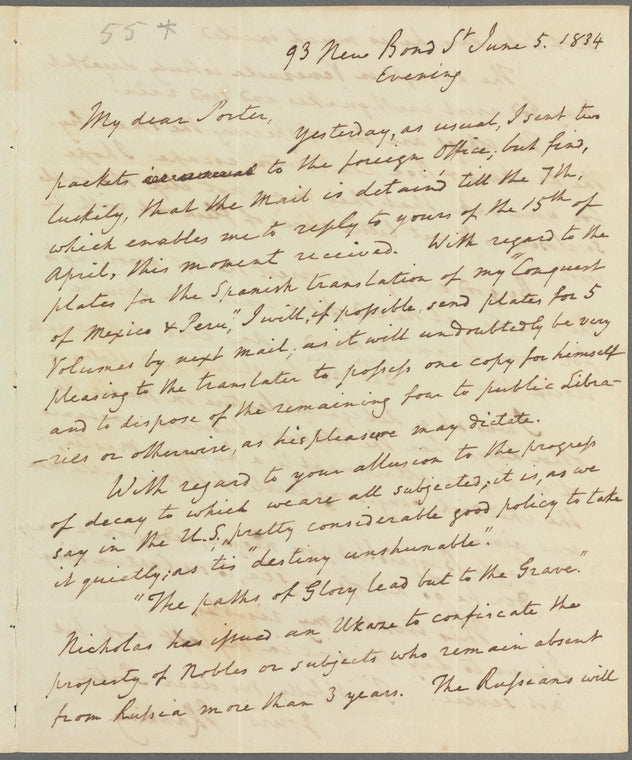 55 *
93 New Bond St June 5. 1834
Evening
My dear Porter,
Yesterday, as usual, I sent two
packets to the foreign Office; but find,
luckily, that the Mail is detain'd till the 7th,
which enables me to reply to yours of the 15th of
April, this moment received. With regard to the
plates for the Spanish translation of my "Conquest
of Mexico & Peru," I will, if possible, send plates for 5
Volumes by next mail; as it will undoubtedly be very
pleasing to the translater to possess one copy for himself
and to dispose of the remaining four to public Libra-
-ries or otherwise, as his pleasure may dictate.
With regard to your allusion to the progress
of decay to which we are all subjected; it is, as we
say in the U.S., pretty considerable good policy to take
it quietly; as 'tis "destiny unshunable".
"The paths of Glory lead but to the Grave."
Nicholas has issued an Ukaze to confiscate the
property of Nobles or subjects who remain absent
from Russia more than 3 years. The Russians will